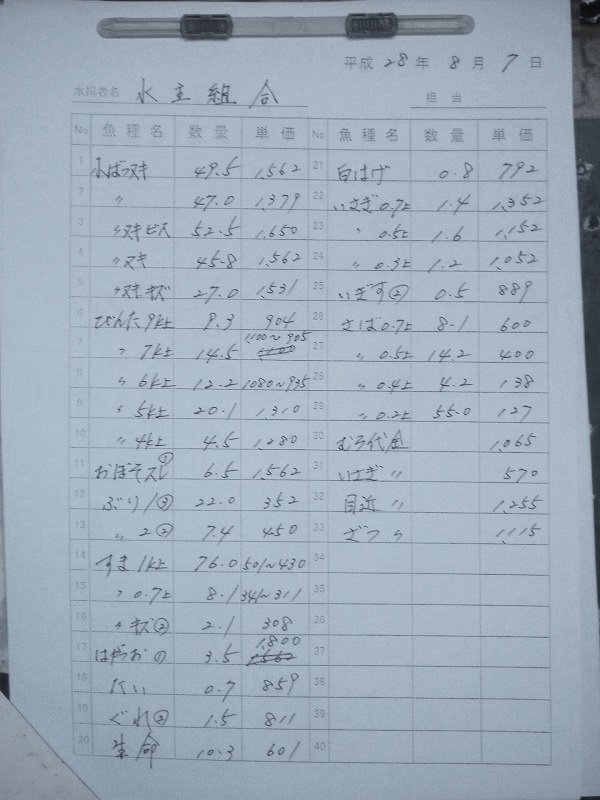 平成 28 年 8 月 7 日
水揚者名 水主組合 担当
No 魚種名 数量 単価
1 小ばつヌキ 49.5 1,562
2 〃 47.0 1,379
3 〃ヌキ 52.5 1,650
4 〃ヌキ 45.8 1,562
5 〃ヌキキズ 27.0 1,531
6 びんた9k上 9.3 904
7 〃 7k上 14.5 1,100~905
8 〃 6k上 12.2 1080~935
9 〃 5k上 20.1 1,310
10 〃 4k上 4.5 1,280
11 おぼそスレ① 6.5 1,562
12 ぶり1③ 22.0 352
13 〃 2② 7.4 450
14 すま1k上 76.0 501~430
15 〃 0.7上 8.1 341~311
16 〃キズ② 2.1 308
17 はやうお① 3.5 1,800
18 たい 0.7 859
19 ぐれ② 1.5 811
20 生命 10.3 601
No 魚種名 数量 単価
21 白はげ 0.8 792
22 いさぎ0.7上 1.4 1,352
23 〃 0.5上 1.6 1,152
24 〃 0.3上 1.2 1,052
25 いぎす② 0.5 889
26 さば0.7上 8.1 600
27 〃 0.5上 14.2 400
28 〃 0.4上 4.2 138
29 〃 0.2上 55.0 127
30 むろ代金 1,065
31 いさぎ 〃 570
32 目近 〃 1,255
33 ざつ 〃 1,115
34
35
36
37
38
39
40